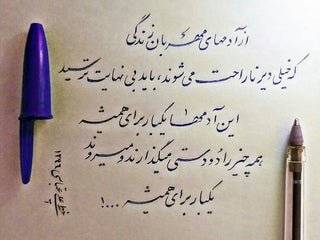 از آدمهای مهربان زندگی
که خیلی دیر ناراحت می شوند، باید بی نهایت ترسید
این آدمها یکبار برای همیشه
همه چیز را دو دستی میگذارند و میروند
یکبار برای همیشه ...!